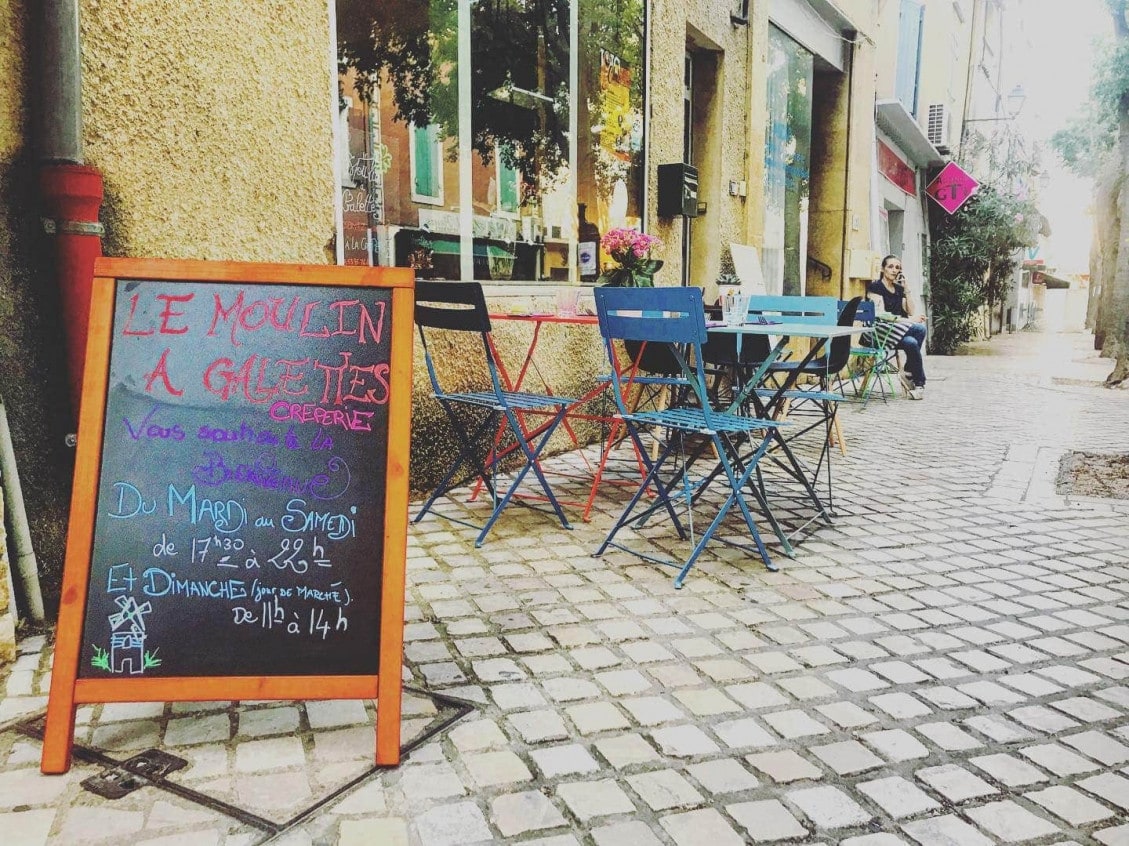 LE MOULIN
A GALETTES
CREPERIE
Vous souhaite LA
Bienvenue
DU MARDi au SAMEDi
de 17h30 à 22h
ET DIMANCHE (jour DE MARCHÉ).
De 11h à 14h
Galette
A la
GT